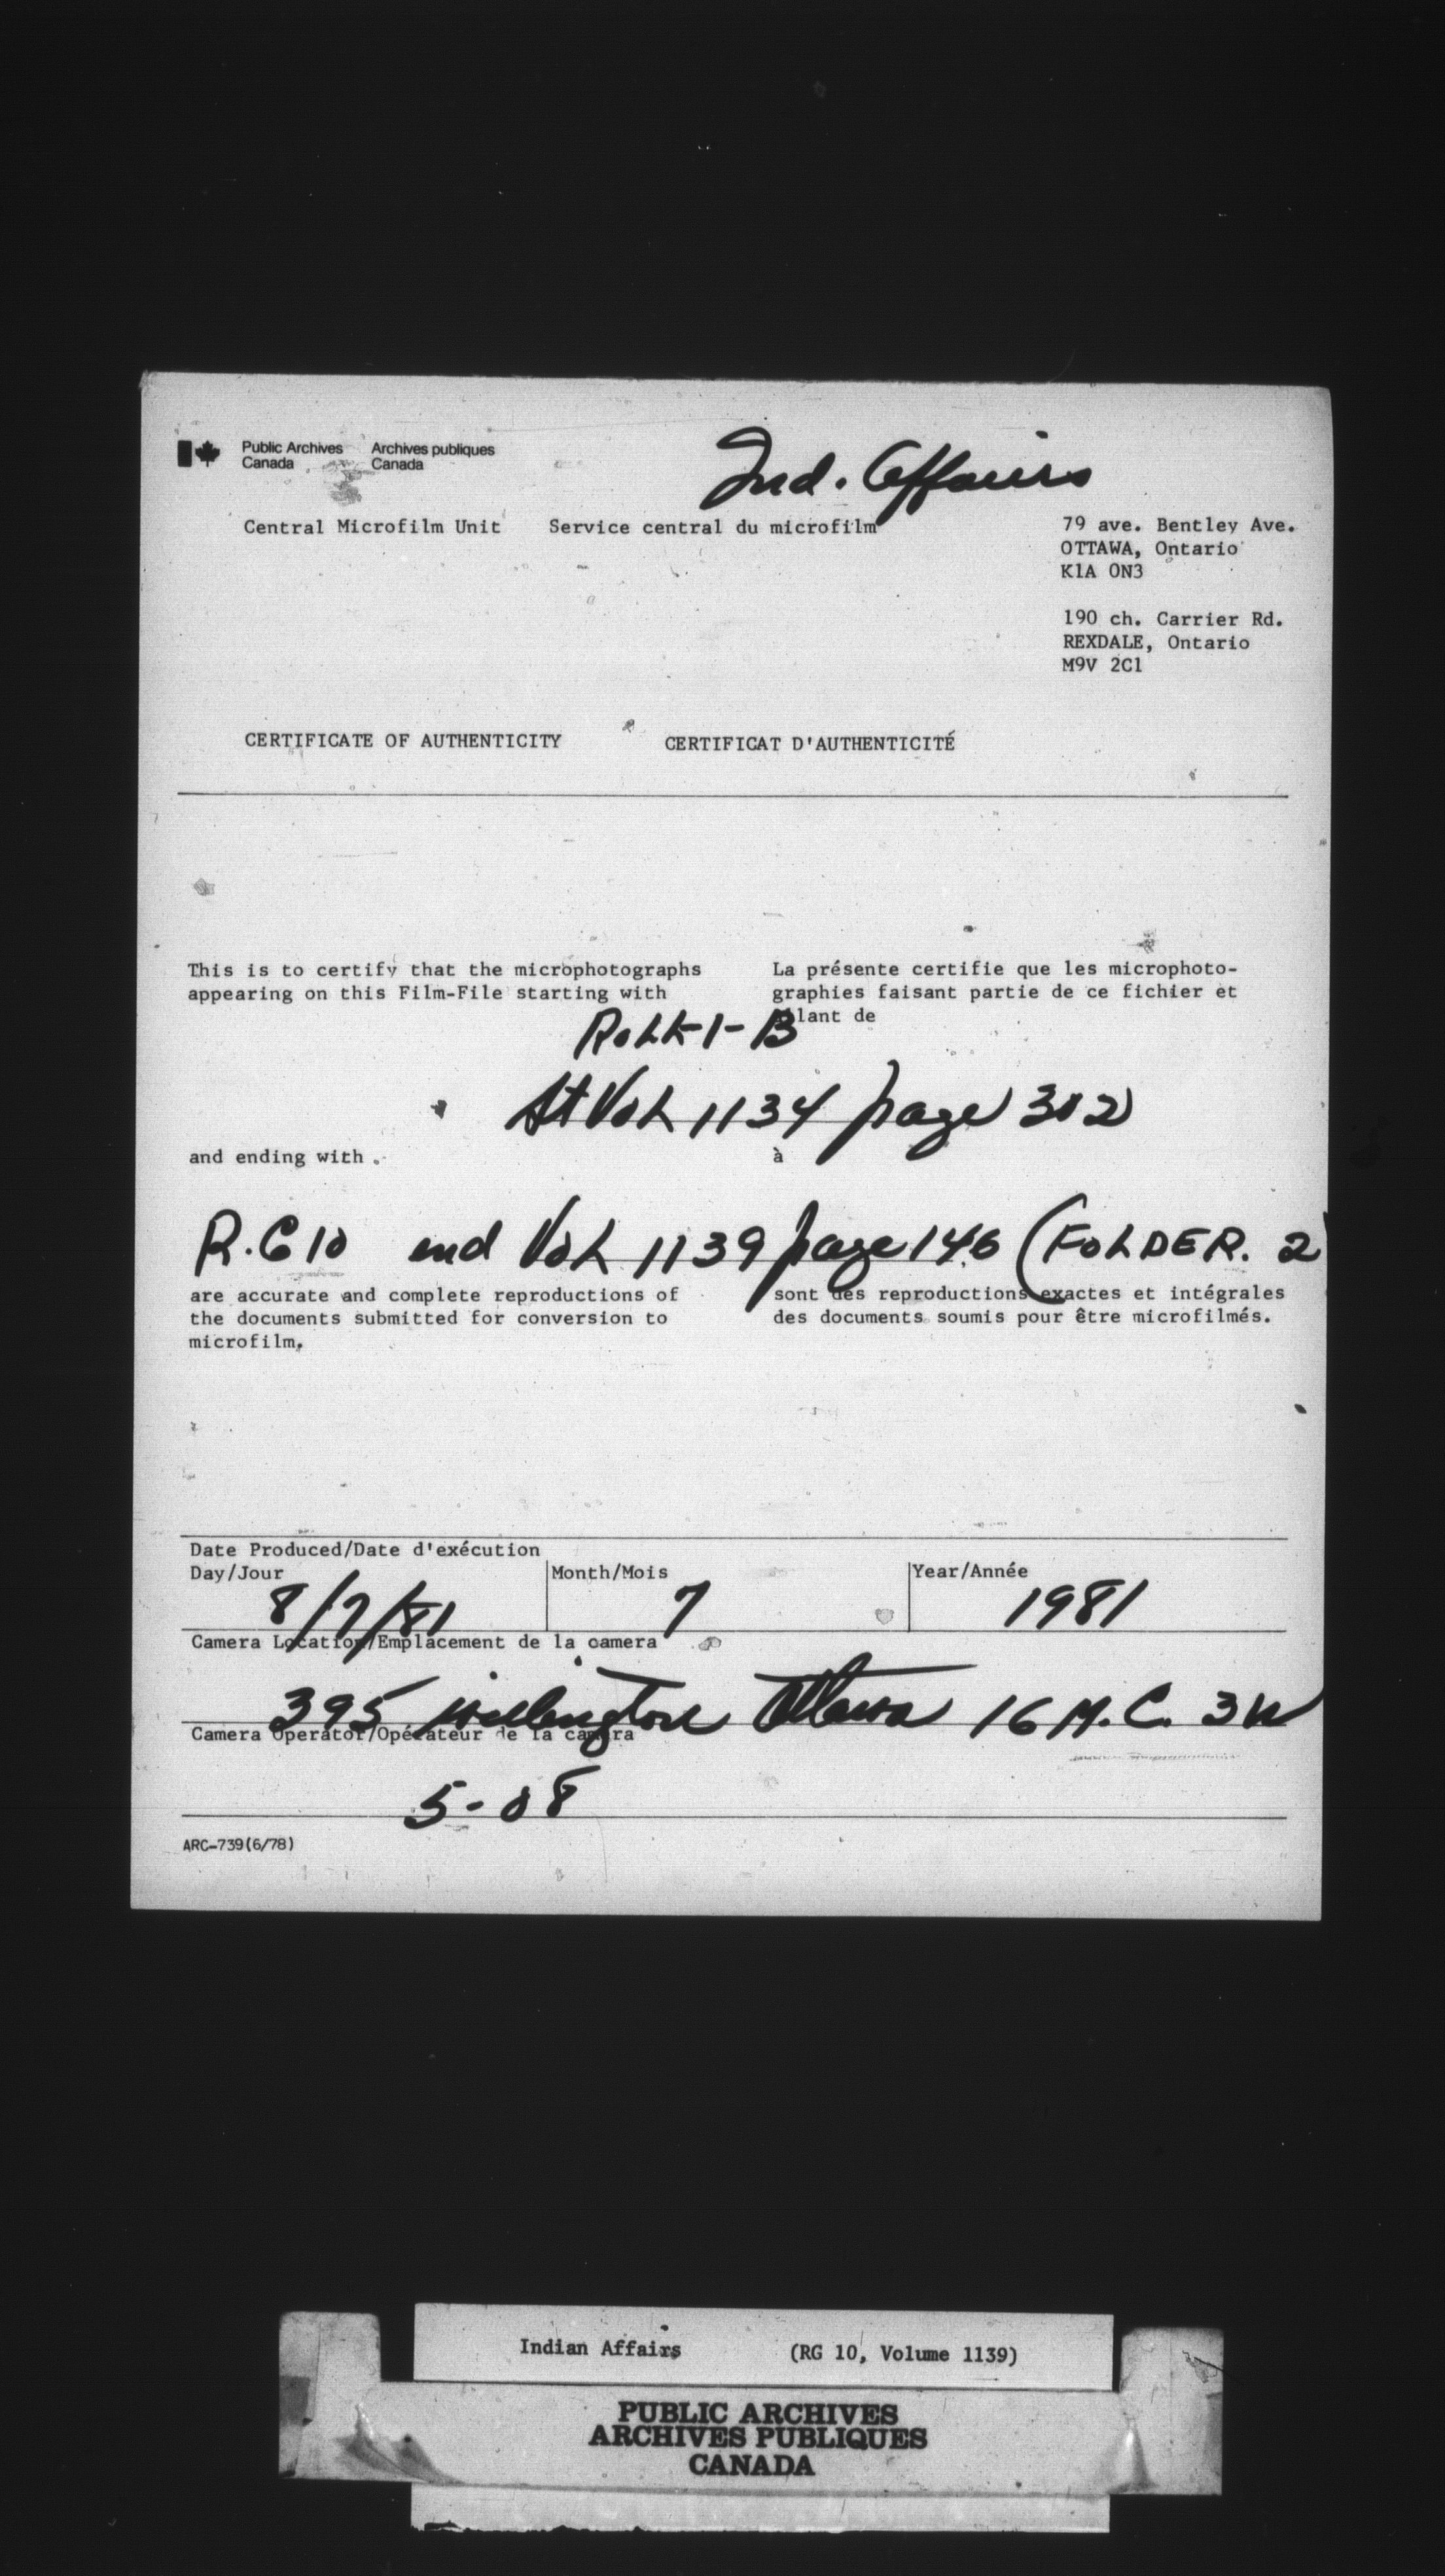 Public Archives Canada
Archives publiques Canada
Ind. Affairs
Central Microfilm Unit
Service central du microfilm
79 ave. Bentley Ave.
OTTAWA, Ontario
K1A 0N3
190 ch. Carrier Rd.
REXDALE, Ontario
M9V 2C1
CERTIFICATE OF AUTHENTICITY
CERTIFICAT D'AUTHENTICITÉ
This is to certify that the microphotographs
appearing on this Film-File starting with
La présente certifie que les microphoto-
graphies faisant partie de ce fichier et
allant de
Roll-1-B
St Vol 1134 page 302
and ending with
à
R.G 10 end Vol 1139 page 146 (FOLDER. 2
are accurate and complete reproductions of
the documents submitted for conversion to
microfilm.
sont des reproductions exactes et intégrales
des documents soumis pour être microfilmés.
Date Produced/Date d'exécution
Day/Jour
Month/Mois
Year/Année
8/7/81
7
1981
Camera Location/Emplacement de la camera
395 Wellington Ottawa 16 M.C. 3W
Camera Operator/Opérateur de la caméra
5-08
ARC-739(6/78)
Indian Affairs (RG 10, Volume 1139)
PUBLIC ARCHIVES
ARCHIVES PUBLIQUES
CANADA